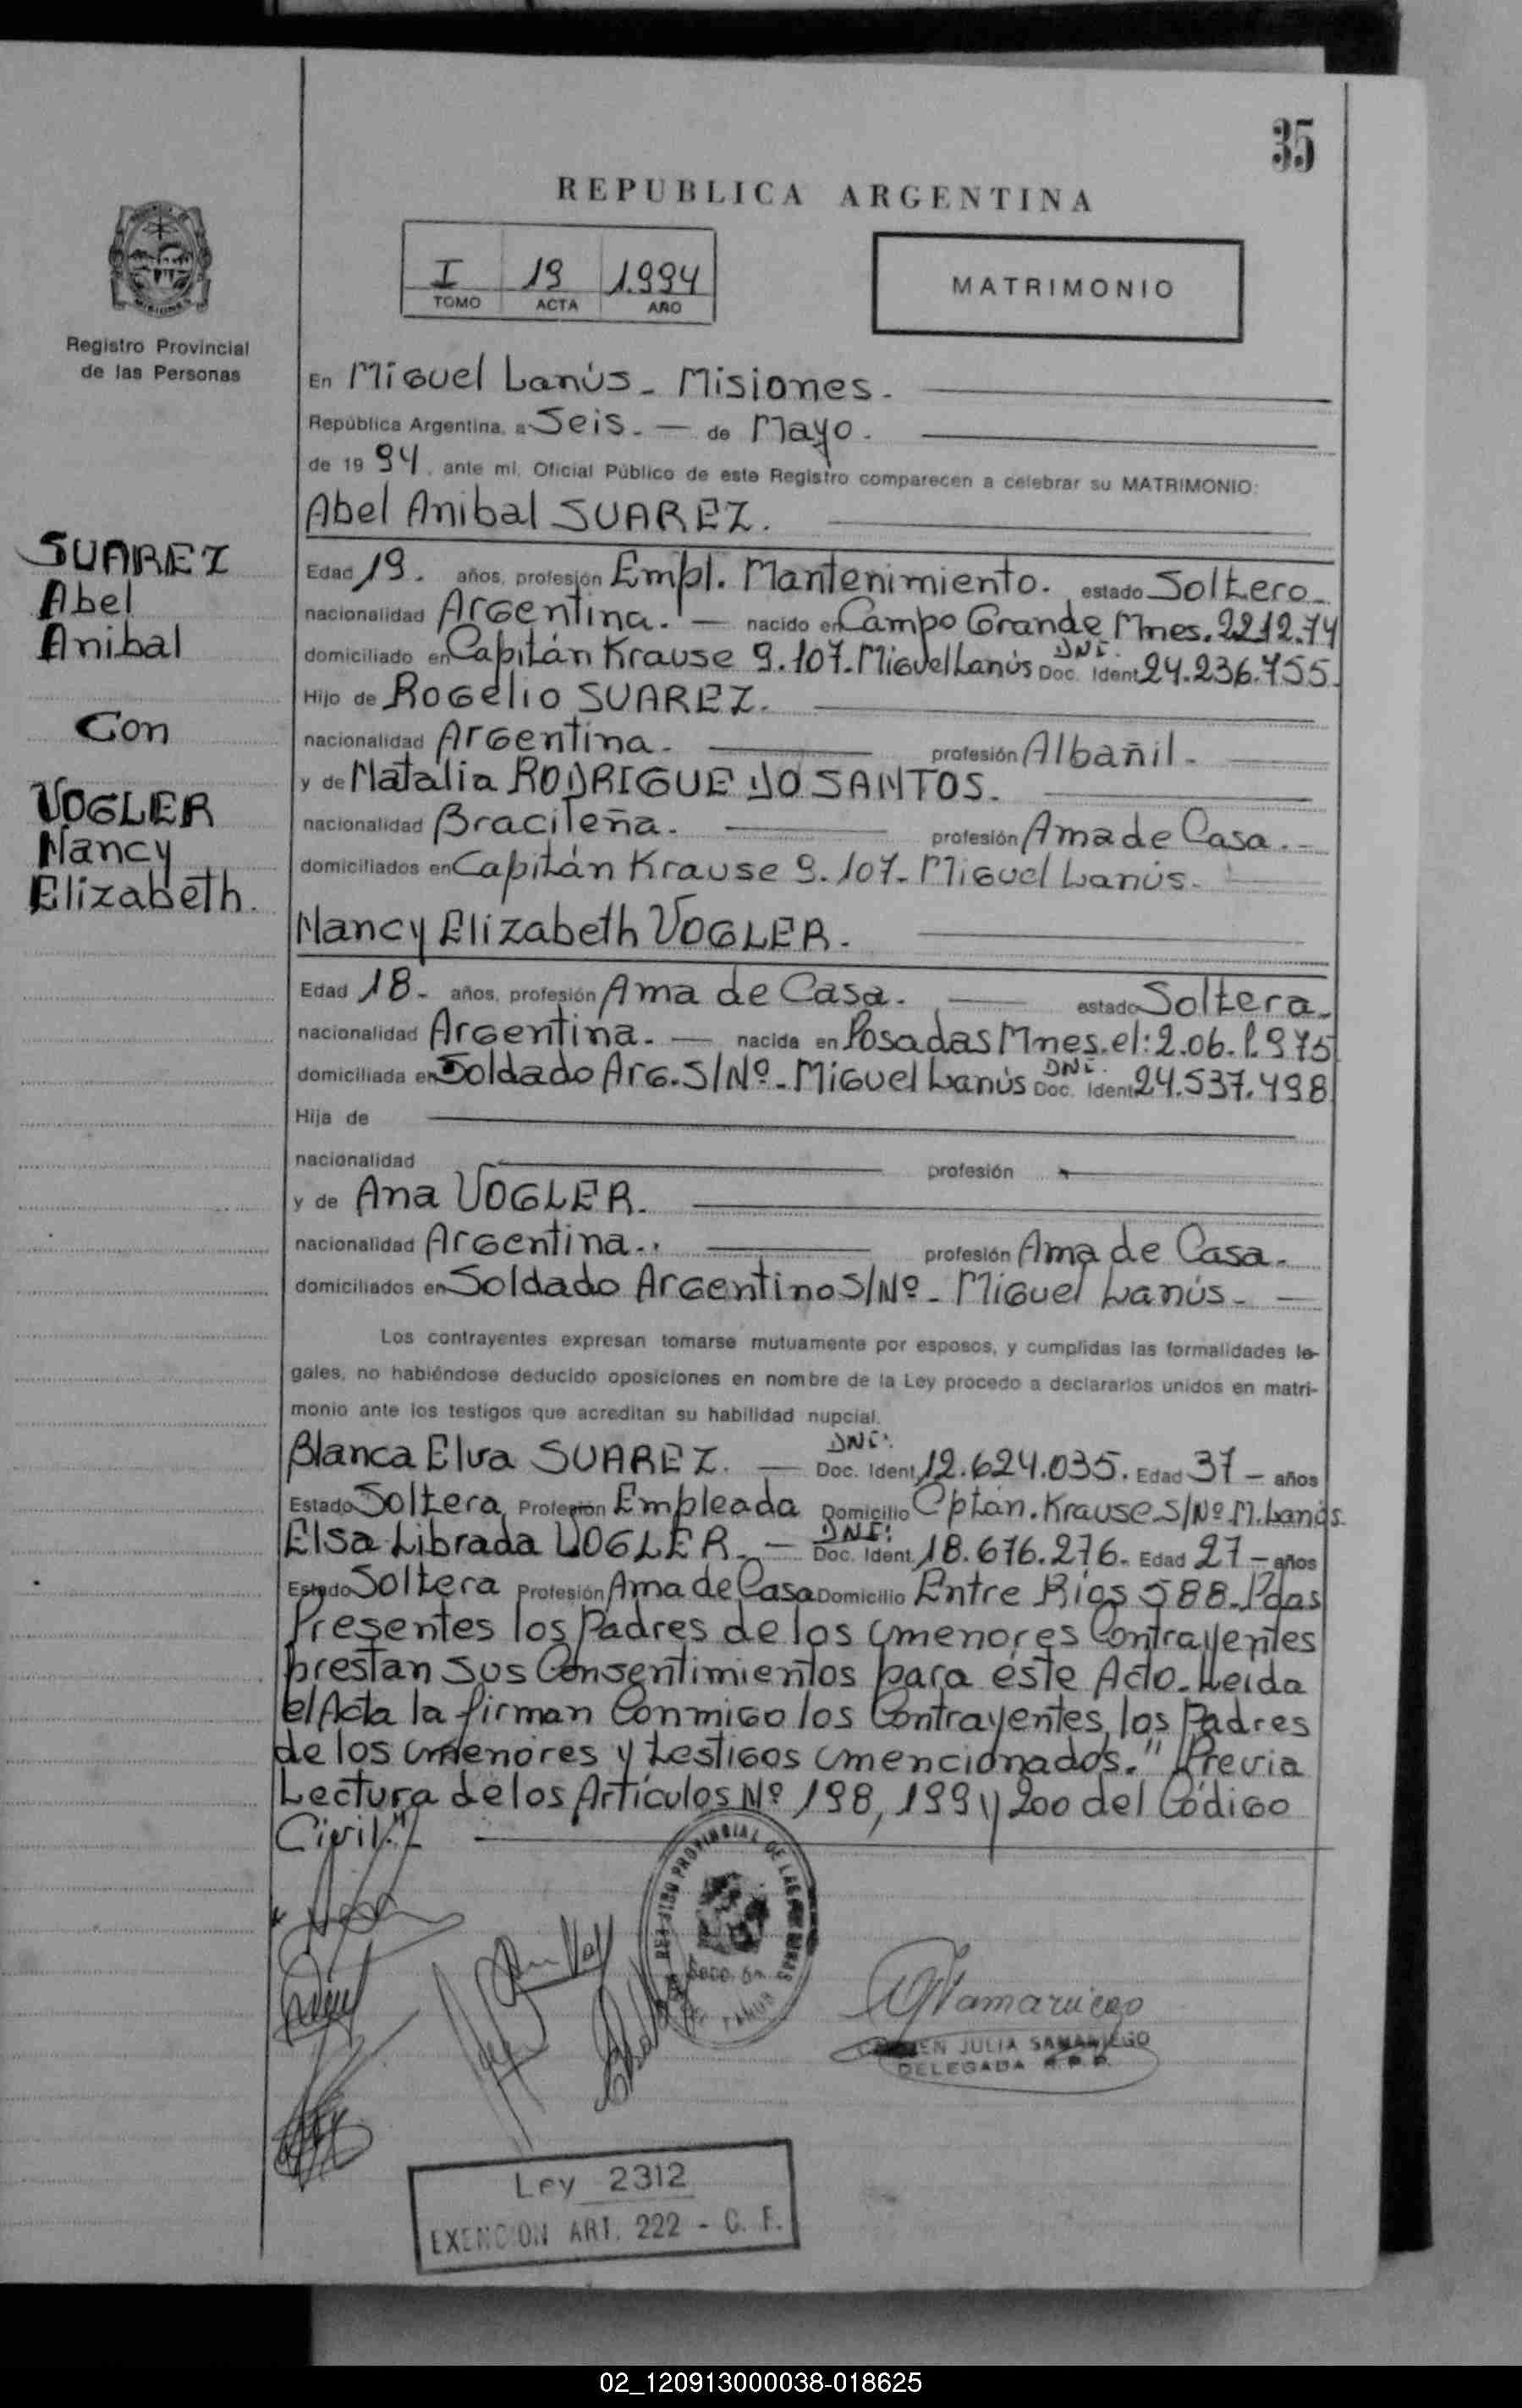 35
REPUBLICA ARGENTINA
I 19 1.994
TOMO ACTA AÑO
MATRIMONIO
Registro Provincial
de las Personas
En Miguel Lanús - Misiones.
República Argentina, a Seis. — de Mayo.
de 19 94, ante mi, Oficial Público de este Registro comparecen a celebrar su MATRIMONIO:
Abel Anibal SUAREZ.
SUAREZ
Abel
Anibal
Con
VOGLER
Nancy
Elizabeth.
Edad 19. años, profesión Empl. Mantenimiento. estado Soltero.
nacionalidad Argentina. — nacido en Campo Grande Mnes. 22.12.74
domiciliado en Capitán Krause 9.107. Miguel Lanús DNI. Doc. Ident 24.236.755.
Hijo de Rogelio SUAREZ.
nacionalidad Argentina. profesión Albañil.
y de Natalia RODRIGUE DO SANTOS.
nacionalidad Bracileña. profesión Ama de Casa.
domiciliados en Capitán Krause 9.107. Miguel Lanús.
Nancy Elizabeth VOGLER.
Edad 18. años, profesión Ama de Casa. estado Soltera.
nacionalidad Argentina. — nacida en Posadas Mnes. el: 2.06.1.975
domiciliada en Soldado Arg. S/Nº. Miguel Lanús DNI. Doc. Ident 24.537.498
Hija de
nacionalidad profesión
y de Ana VOGLER.
nacionalidad Argentina.. profesión Ama de Casa.
domiciliados en Soldado Argentino S/Nº - Miguel Lanús.
Los contrayentes expresan tomarse mutuamente por esposos, y cumplidas las formalidades le-
gales, no habiéndose deducido oposiciones en nombre de la Ley procedo a declararlos unidos en matri-
monio ante los testigos que acreditan su habilidad nupcial.
Blanca Elva SUAREZ. — DNI: Doc. Ident. 12.624.035. Edad 37 - años
Estado Soltera Profesión Empleada Domicilio Cptán. Krause S/Nº M. Lanús
Elsa Librada VOGLER. — DNI: Doc. Ident. 18.676.276. Edad 27 - años
Estado Soltera Profesión Ama de Casa Domicilio Entre Rios 588. Pdas
Presentes los Padres de los menores Contrayentes
prestan sus Consentimientos para éste Acto. Leida
el Acta la firman Conmigo los Contrayentes, los Padres
de los menores y testigos mencionados." Previa
Lectura de los Artículos Nº 198, 199 y 200 del Código
Civil."
REGISTRO PROVINCIAL DE LAS PERSONAS
JULIA SAMANIEGO
DELEGADA R.P.P.
Ley 2312
EXENCION ART. 222 - C. F.
02_120913000038-018625